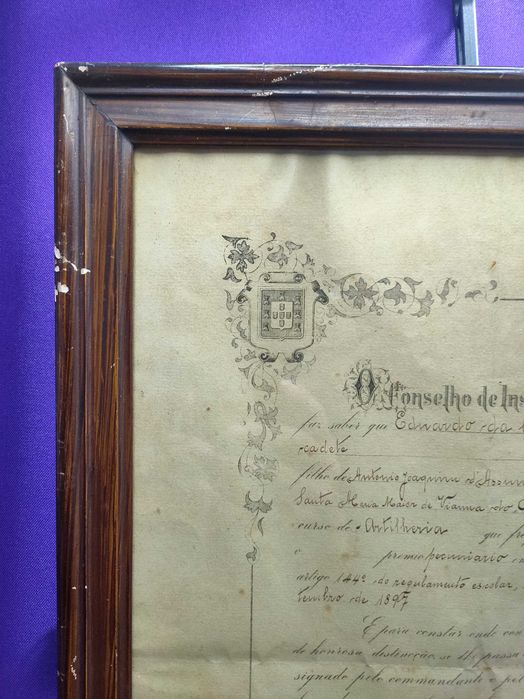 O Conselho de Ins
faz saber que Eduardo da
cadete
filho de Antonio Joaquim d'Assun
Santa Maria Maior de Vianna do C
curso de Artilheria que fre
o premio pecuniario
artigo 144º do regulamento escolar,
tembro de 1897
E para constar onde con
de honrosa distincção, se lhe passa
signado pelo commandante e pel